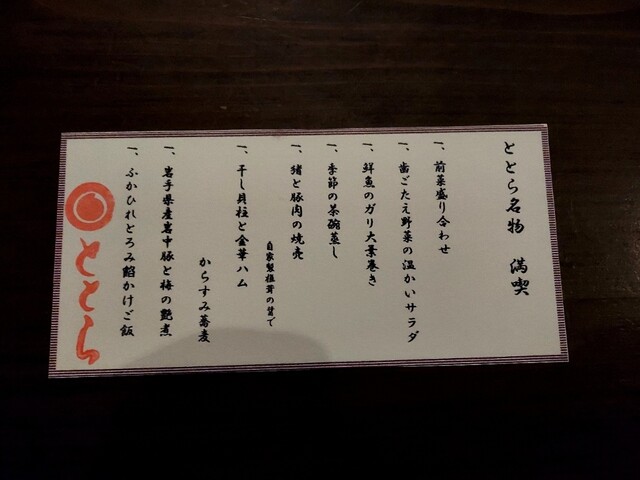 ととら名物　満喫
一、前菜盛り合わせ
一、歯ごたえ野菜の温かいサラダ
一、鮮魚のガリ大葉巻き
一、季節の茶碗蒸し
一、豚肉の焼売
自家製椎茸の醤で
一、干し貝柱と金華ハム
からすみ蕎麦
一、岩手県産岩中豚と梅の艶煮
一、ふかひれとろみ餡かけご飯
ととら